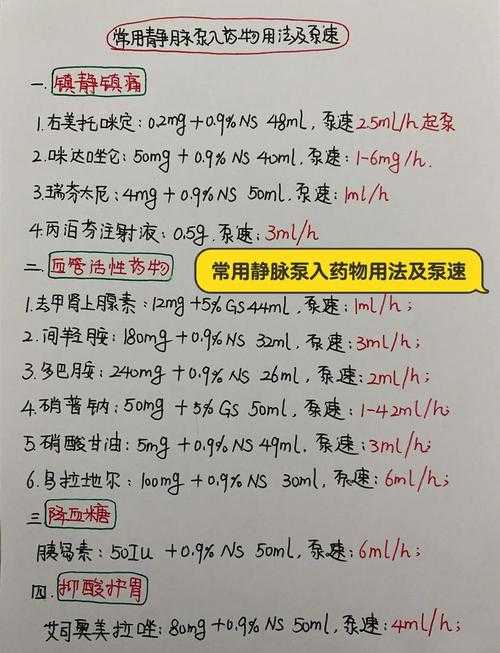 常用静脉泵入药物用法及泵速
一. 镇静镇痛
1.右美托咪定: 0.2mg+0.9%NS 48ml, 泵速2.5ml/h起泵
2.咪达唑仑: 50mg + 0.9% NS 40ml, 泵速: 1-6mg/h.
3.瑞芬太尼: 4mg + 0.9% NS 50ml, 泵速: 1ml/h
4.丙泊芬注射液: 0.5g. 泵速: 3ml/h
二. 血管活性药物
常用静脉泵入药物用法及泵速
1.去甲肾上腺素: 12mg+5%GS44ml, 泵速: 1ml/h;
2.间羟胺: 180mg+0.9% NS 32ml, 泵速: 3ml/h;
3.多巴胺: 240mg+0.9% NS 26ml, 泵速: 2ml/h;
4.硝普钠: 50mg +5% GS 50ml, 泵速: 1-42ml/h;
5.硝酸甘油: 5mg+0.9% NS 49ml. 泵速: 3ml/h;
6.乌拉地尔: 100mg +0.9% NS 30ml, 泵速: 6ml/h;
三 降血糖
胰岛素: 50Iu +0.9% NS 50ml, 泵速: 6ml/h;
四. 抑酸护胃
艾司奥美拉唑: 80mg+0.9% NS 50ml, 泵速: 4ml/h;